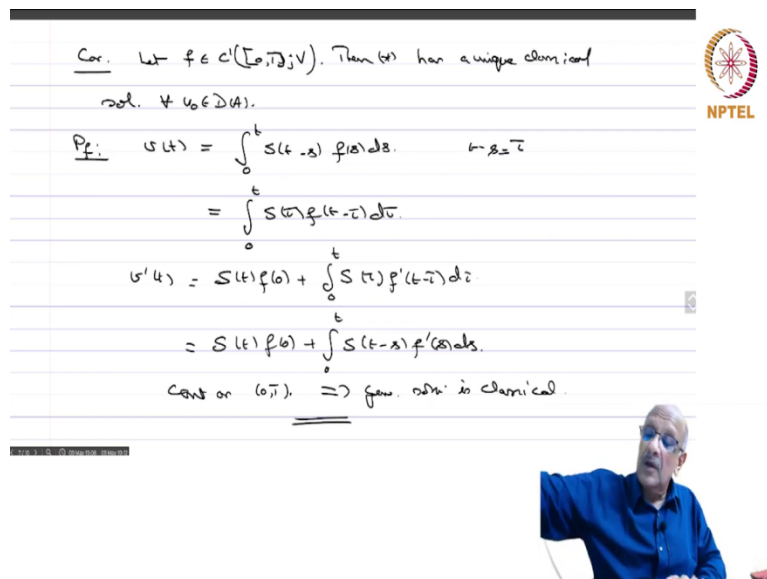 Cor. Let f ∈ C'([0,T];V). Then (*) has a unique classical
sol. ∀ u₀∈D(A).
NPTEL
Pf: v(t) = ∫₀ᵗ S(t-s) f(s) ds. t-s=τ
= ∫₀ᵗ S(τ) f(t-τ) dτ.
v'(t) = S(t)f(0) + ∫₀ᵗ S(τ) f'(t-τ) dτ
= S(t) f(0) + ∫₀ᵗ S(t-s) f'(s) ds.
Cont on (0,T). => gen. soln. is classical.